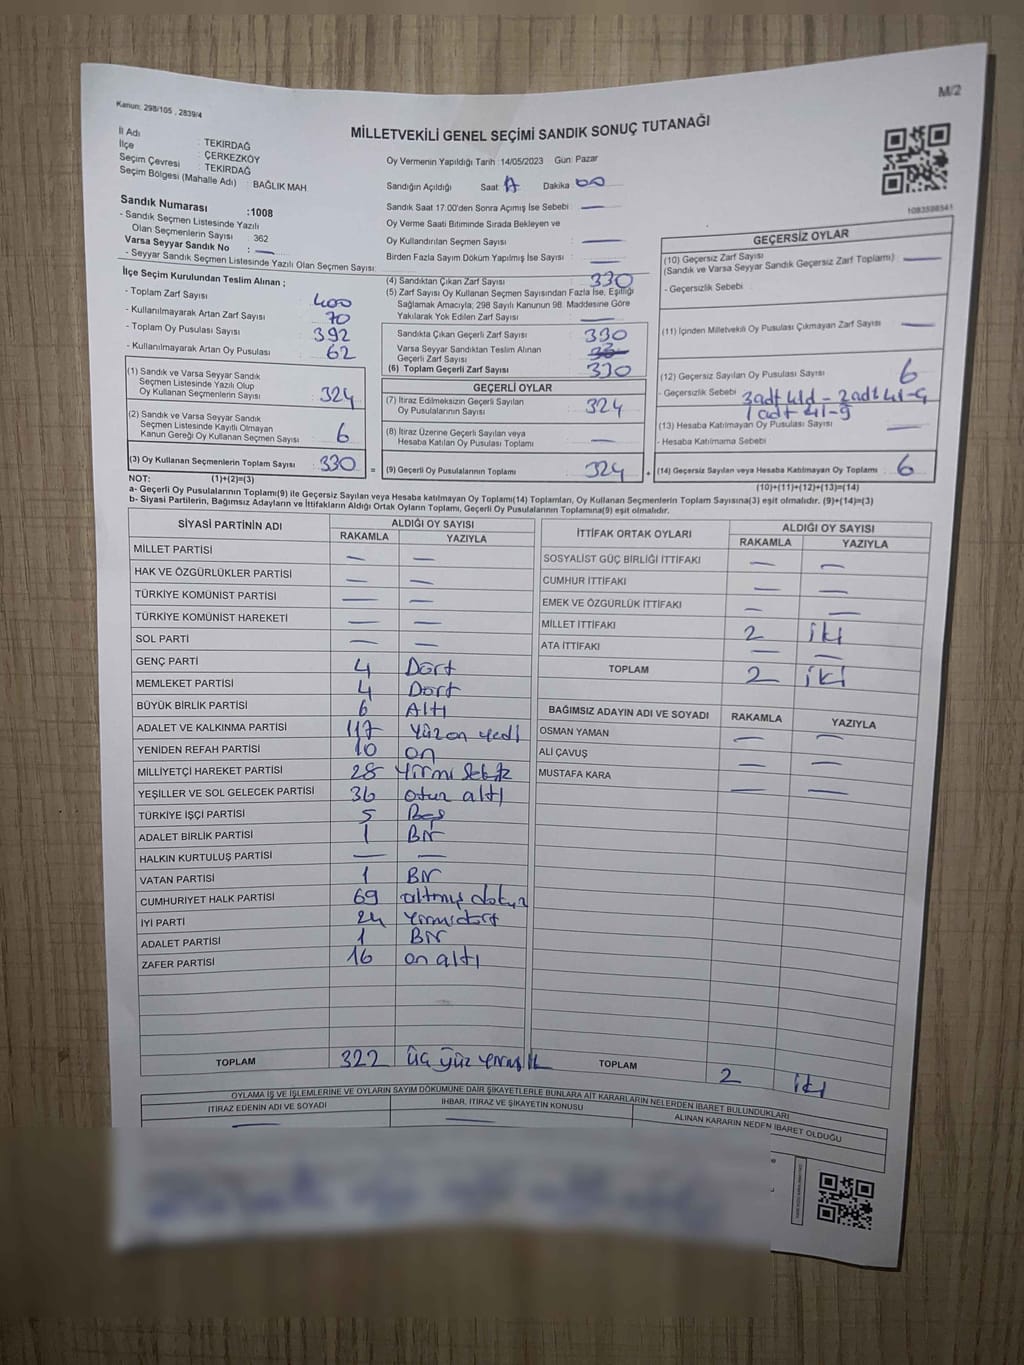 M/2
Kanun: 298/105 , 2839/4
MİLLETVEKİLİ GENEL SEÇİMİ SANDIK SONUÇ TUTANAĞI
İl Adı : TEKİRDAĞ
İlçe : ÇERKEZKÖY
Seçim Çevresi : TEKİRDAĞ
Seçim Bölgesi (Mahalle Adı) : BAĞLIK MAH
Sandık Numarası :1008
- Sandık Seçmen Listesinde Yazılı
Olan Seçmenlerin Sayısı : 362
Varsa Seyyar Sandık No : —
- Seyyar Sandık Seçmen Listesinde Yazılı Olan Seçmen Sayısı:
İlçe Seçim Kurulundan Teslim Alınan ;
- Toplam Zarf Sayısı 400
- Kullanılmayarak Artan Zarf Sayısı 70
- Toplam Oy Pusulası Sayısı 392
- Kullanılmayarak Artan Oy Pusulası 62
(1) Sandık ve Varsa Seyyar Sandık
Seçmen Listesinde Yazılı Olup
Oy Kullanan Seçmenlerin Sayısı 324
(2) Sandık ve Varsa Seyyar Sandık
Seçmen Listesinde Kayıtlı Olmayan
Kanun Gereği Oy Kullanan Seçmen Sayısı 6
(3) Oy Kullanan Seçmenlerin Toplam Sayısı 330
Oy Vermenin Yapıldığı Tarih :14/05/2023 Gün: Pazar
Sandığın Açıldığı Saat: Dakika :
Sandık Saat 17.00'den Sonra Açımış İse Sebebi : —
Oy Verme Saati Bitiminde Sırada Bekleyen ve
Oy Kullandırılan Seçmen Sayısı : —
Birden Fazla Sayım Döküm Yapılmış İse Sayısı : —
(4) Sandıktan Çıkan Zarf Sayısı : 330
(5) Zarf Sayısı Oy Kullanan Seçmen Sayısından Fazla İse, Eşitliği
Sağlamak Amacıyla; 298 Sayılı Kanunun 98. Maddesine Göre
Yakılarak Yok Edilen Zarf Sayısı : —
Sandıkta Çıkan Geçerli Zarf Sayısı 330
Varsa Seyyar Sandıktan Teslim Alınan
Geçerli Zarf Sayısı
(6) Toplam Geçerli Zarf Sayısı 330
GEÇERLİ OYLAR
(7) İtiraz Edilmeksizin Geçerli Sayılan
Oy Pusulalarının Sayısı : 324
(8) İtiraz Üzerine Geçerli Sayılan veya
Hesaba Katılan Oy Pusulası Toplamı : —
= (9) Geçerli Oy Pusulalarının Toplamı : 324
1083598541
GEÇERSİZ OYLAR
(10) Geçersiz Zarf Sayısı
(Sandık ve Varsa Seyyar Sandık Geçersiz Zarf Toplamı) : —
- Geçersizlik Sebebi :
(11) İçinden Milletvekili Oy Pusulası Çıkmayan Zarf Sayısı : —
(12) Geçersiz Sayılan Oy Pusulası Sayısı : 6
- Geçersizlik Sebebi : 3adt 41d - 2adt 41-G
1 adt 41-g
(13) Hesaba Katılmayan Oy Pusulası Sayısı : —
- Hesaba Katılmama Sebebi :
+ (14) Geçersiz Sayılan veya Hesaba Katılmayan Oy Toplamı : 6
NOT: (1)+(2)=(3)
(10)+(11)+(12)+(13)=(14)
a- Geçerli Oy Pusulalarının Toplamı(9) ile Geçersiz Sayılan veya Hesaba katılmayan Oy Toplamı(14) Toplamları, Oy Kullanan Seçmenlerin Toplam Sayısına(3) eşit olmalıdır. (9)+(14)=(3)
b- Siyasi Partilerin, Bağımsız Adayların ve İttifakların Aldığı Ortak Oyların Toplamı, Geçerli Oy Pusulalarının Toplamına(9) eşit olmalıdır.
SİYASİ PARTİNİN ADI ALDIĞI OY SAYISI
RAKAMLA YAZIYLA
MİLLET PARTİSİ — —
HAK VE ÖZGÜRLÜKLER PARTİSİ — —
TÜRKİYE KOMÜNİST PARTİSİ — —
TÜRKİYE KOMÜNİST HAREKETİ — —
SOL PARTİ — —
GENÇ PARTİ 4 Dört
MEMLEKET PARTİSİ 4 Dört
BÜYÜK BİRLİK PARTİSİ 6 Altı
ADALET VE KALKINMA PARTİSİ 117 Yüzon yedi
YENİDEN REFAH PARTİSİ 10 on
MİLLİYETÇİ HAREKET PARTİSİ 28 Yirmi Sekiz
YEŞİLLER VE SOL GELECEK PARTİSİ 36 otuz altı
TÜRKİYE İŞÇİ PARTİSİ 5 Beş
ADALET BİRLİK PARTİSİ 1 Bir
HALKIN KURTULUŞ PARTİSİ — —
VATAN PARTİSİ 1 Bir
CUMHURİYET HALK PARTİSİ 69 altmış dokuz
İYİ PARTİ 24 Yirmidört
ADALET PARTİSİ 1 Bir
ZAFER PARTİSİ 16 on altı
TOPLAM 322 üç yüz
İTTİFAK ORTAK OYLARI ALDIĞI OY SAYISI
RAKAMLA YAZIYLA
SOSYALİST GÜÇ BİRLİĞİ İTTİFAKI — —
CUMHUR İTTİFAKI — —
EMEK VE ÖZGÜRLÜK İTTİFAKI — —
MİLLET İTTİFAKI 2 iki
ATA İTTİFAKI — —
TOPLAM 2 iki
BAĞIMSIZ ADAYIN ADI VE SOYADI RAKAMLA YAZIYLA
OSMAN YAMAN — —
ALİ ÇAVUŞ — —
MUSTAFA KARA — —
TOPLAM 2 iki
OYLAMA İŞ VE İŞLEMLERİNE VE OYLARIN SAYIM DÖKÜMÜNE DAİR ŞİKAYETLERLE BUNLARA AİT KARARLARIN NELERDEN İBARET BULUNDUKLARI
İTİRAZ EDENİN ADI VE SOYADI İHBAR, İTİRAZ VE ŞİKAYETİN KONUSU ALINAN KARARIN NEDEN İBARET OLDUĞU
— —